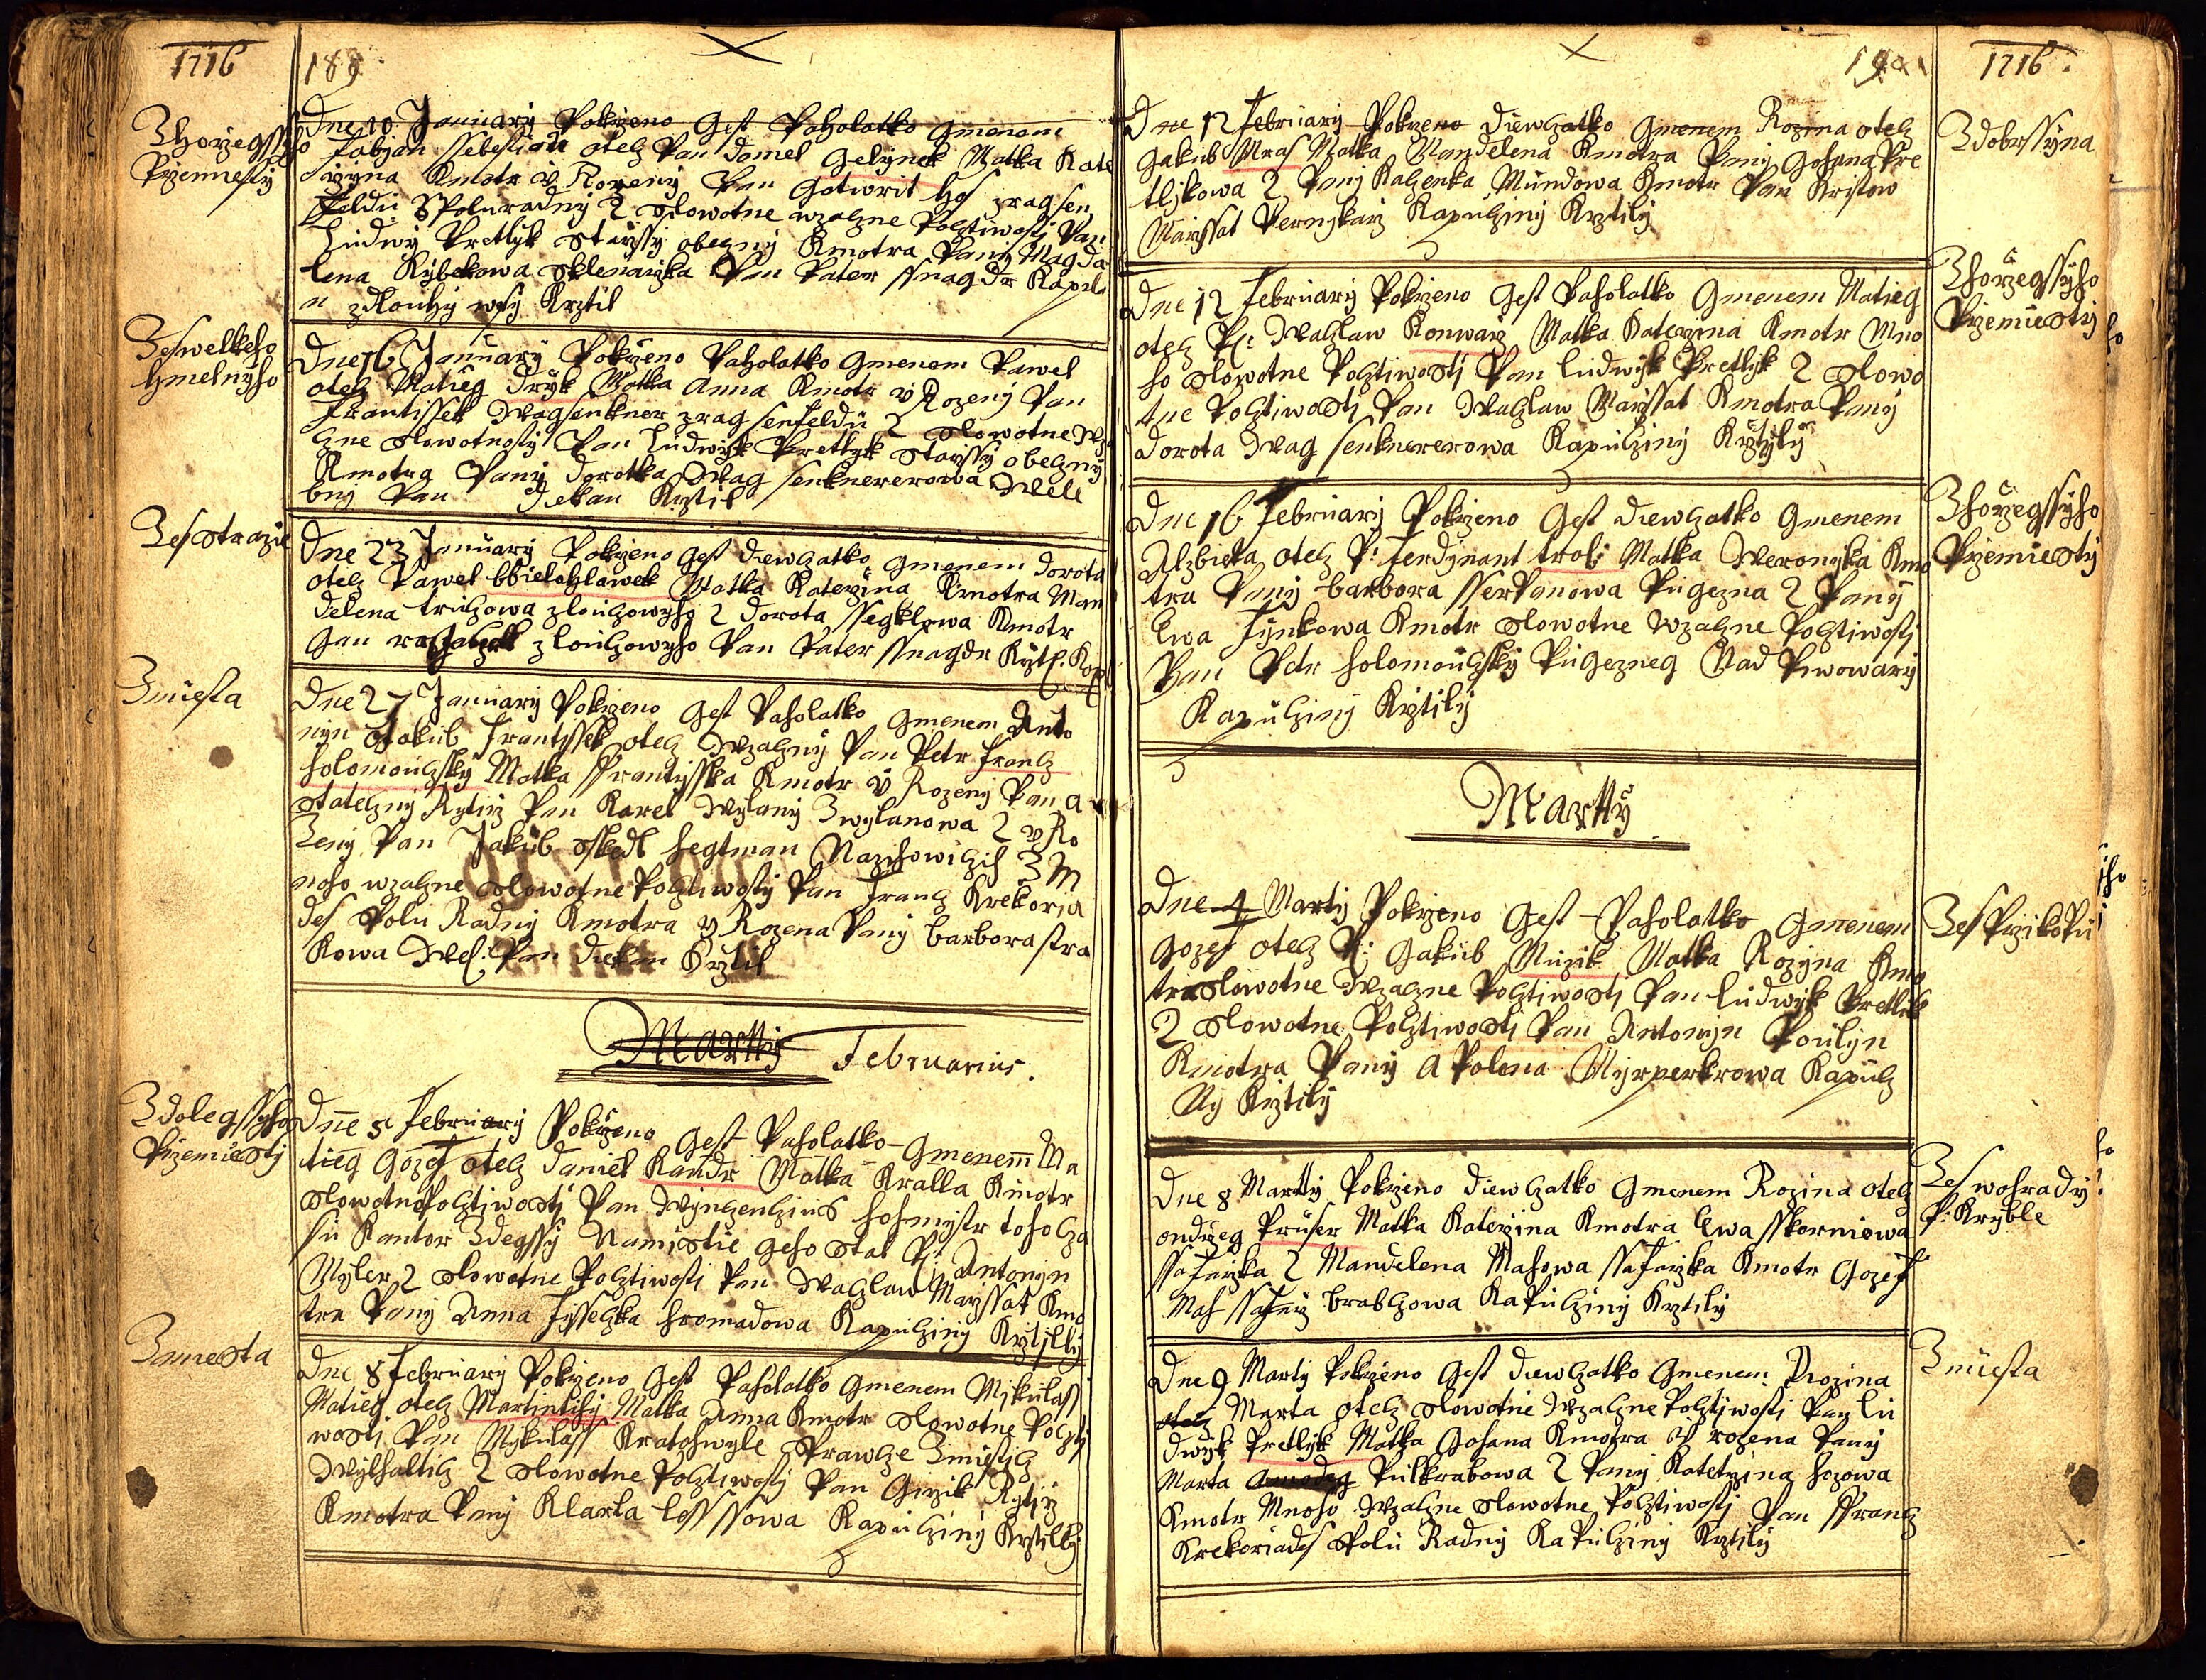 1716
189
Zhorzegssyho
Przemiesty
Dne 10 January Pokrzeno Gest Paholatko Gmenem
Fabjan Ssebestian otecz Pan Daniel Gelynek Matka Kate
rzyna Kmotr Pan
Feldu Spoluradny 2 Slowotne wzaczne Pocztiwosty Pan
Ludwyk Pretlyk Starssy obeczny Kmotra Pany Magda
lena Rybekowa Sklenarzka Pan Pater Ssnagdr Kapla
n zdlouhy wsy Krztil
Zeswelkeho
Hmelnyho
Dne 16 January Pokrzeno Paholatko Gmenem Pawel
otecz Matieg Dryk Matka Anna Kmotr u Rozeny Pan
Frantissek Wagsenkner z ragsenfeldu 2 Slowotne Wza
czne Slowotnosty Pan Ludwyk Pretlyk Starssy obeczny
Kmotra Pany Dorotka Wag senknererowa Wele
bny Pan Dekan Krztil
Zes Strazie
Dne 23 January Pokrzeno Gest Diewczatko Gmenem Dorota
otecz Pawel Bielohlawek Matka Katerzina Kmotra Man
delena z louczowyho 2 Dorota Ssegklowa Kmotr
Gan z louczowyho Pan Pater Ssnagdr Krzt: Kapl
Zmiesta
Dne 27 January Pokrzeno Gest Paholatko Gmenem Anto
nyn Jakub Frantissek otecz Wzaczny Pan Petr Francz
Holomouczsky Matka Ffrantysska Kmotr u Rozeny Pan a
Stateczny Rytirz Pan Karel Wylany Zwylanowa 2 u Ro
zeny Pan Jakub Hegtman 3 M
noho wzaczne Slowotne Pocztiwosty Pan Francz Krekoria
des Spolu Radny Kmotra u Rozena Pany Barbora Stra
kowa Wel: Pan Diekan Krztil
Martty Februarius.
Zdolegssyho
Przemiesty
Dne 5 February Pokrzeno Gest Paholatko Gmenem Ma
tieg Gozef otecz Daniel Kandr Matka Kralla Kmotr
Slowotne Pocztiwosty Pan Wynczenczius Hofmystr toho cza
su Kantor Zdegssy Namistie geho Stal P: Antonyn
Myler 2 Slowotne Pocztiwosti Pan Waczlaw Marssat Kmo
tra Pany Anna Fysselka Hromadowa Kapucziny Krztily
Zmiesta
Dne 8 February Pokrzeno Gest Paholatko Gmenem Mikulass
Matieg otecz Matka Anna Kmotr Slowotne Poczti
wosti Pan Mykulass Kratohwyle Prawcze Zmiestich
2 Slowotne Pocztiwosty Pan Girzik Rytirz
Kmotra Pany Klarla Kapucziny Krztilly
190
1716.
Dne 12 February Pokrzeno Diewczatko Gmenem Rozina otecz
Gakub Mras Matka Mandelena Kmotra Pany Gohana Pre
tlikowa 2 Pany Kaczenka Mundowa Kmotr Pan Kristow
Marssat Pernykarz Kapucziny Krztily
Zdobrssyna
Dne 12 February Pokrzeno Gest Paholatko Gmenem Matieg
otecz P: Waczlaw Konwarz Matka Katerzina Kmotr Mno
ho Slowotne Pocztiwosti Pan Ludwyk Pretlyk 2 Slowo
tne Pocztiwosti Pan Waczlaw Marssat Kmotra Pany
Dorota Wag senknererowa Kapucziny Krztily
Zhorzegssyho
Przemiesty
Dne 16 February Pokrzeno Gest Diewczatko Gmenem
Alzbieta otecz P: Ferdynant Matka Weronyka Kmo
tra Pany Barbora Ssertanowa Pugezna 2 Pany
Ewa Fynkowa Kmotr Slowotne Wzaczne Pocztiwosti
Pan Petr Holomouczsky Pugezneg Nad Piwowary
Kapucziny Krztily
Zhorzegssyho
Przemiesty
Martty
Dne 4 Marty Pokrzeno Gest Paholatko Gmenem
Gozef otecz P: Gakub Muzik Matka Rozyna Kmo
tr Slowotne Wzaczne Pocztiwosti Pan Ludwyk Pretlik
2 Slowotne Pocztiwosti Pan Antonyn Poulyn
Kmotra Pany Apolena Myrperkrowa Kapucz
Ny Krztily
Zes Przikopu
Dne 8 Martty Pokrzeno Diewczatko Gmenem Rozina otecz
ondrzeg Pruser Matka Katerzina Kmotra Ewa Sskorniowa
ssafarzka 2 Mandelena Mahowa ssafarzka Kmotr Gozef
Mah ssafarz Kapucziny Krztily
Zes wohrady
P: Kryble
Dne 9 Marty Pokrzeno Gest Diewczatko Gmenem Rozina
Marta otecz Slowotne Wzaczne Pocztiwosti Pan Lu
dwyk Pretlyk Matka Gohana Kmotra u rozena Pany
Marta Pulkrabowa 2 Pany Katerzina Hozowa
Kmotr Mnoho Wzaczne Slowotne Pocztiwosti Pan Ffrancz
Krekoriades Spolu Radny Kapucziny Krztily
Zmiesta